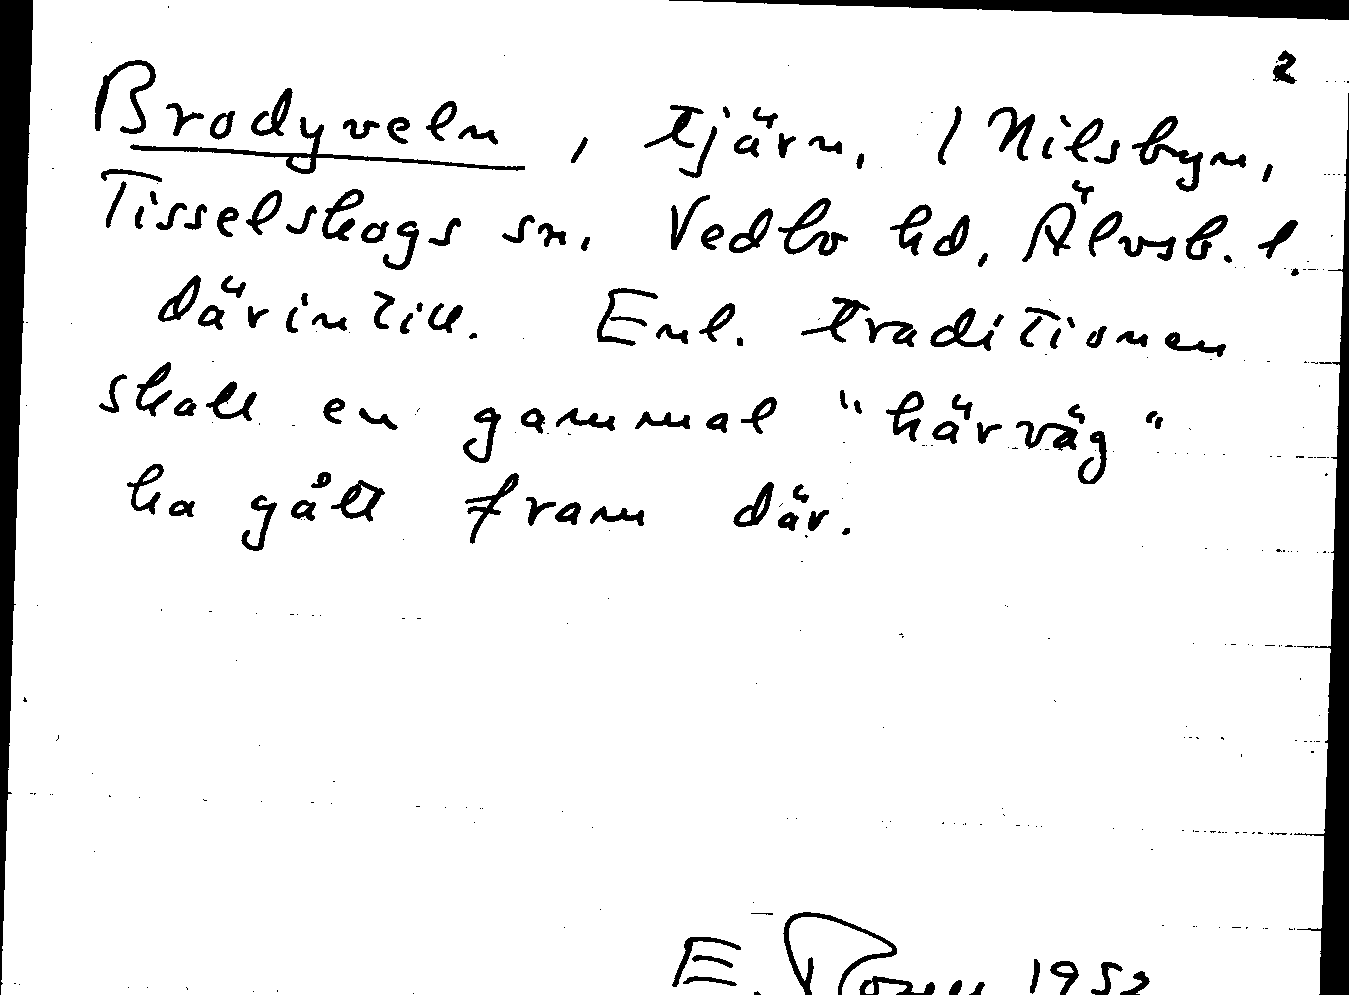 2
Brodyveln, tjärn, 1 Nilsbyn,
Tisselskogs sn. Vedbo hd, Älvsb. l.
därintill. Enl. traditionen
skall en gammal "härväg"
ha gått fram där.
E. 1952